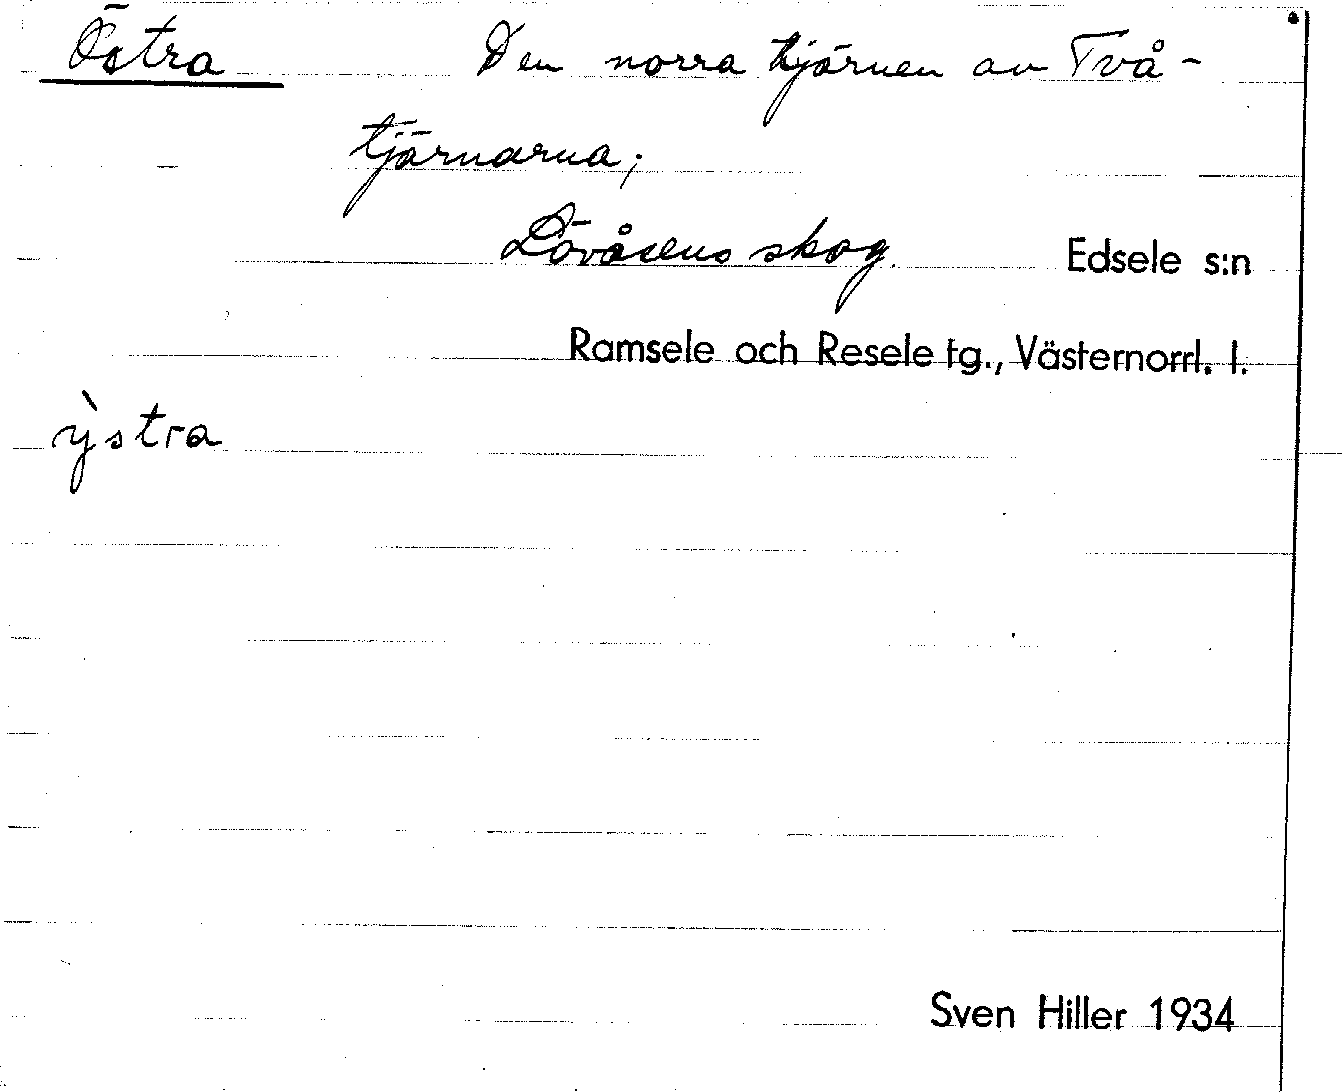 Östra Den norra tjärnen av Två-
tjärnarna;
Lövåsens skog. Edsele s:n
Ramsele och Resele tg., Västernorrl. l.
ỳstra
Sven Hiller 1934